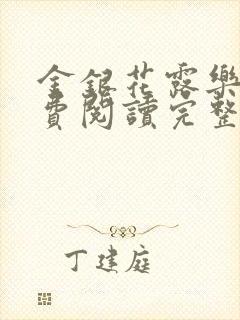 金銀花露樂
費閱讀完整
丁建庭